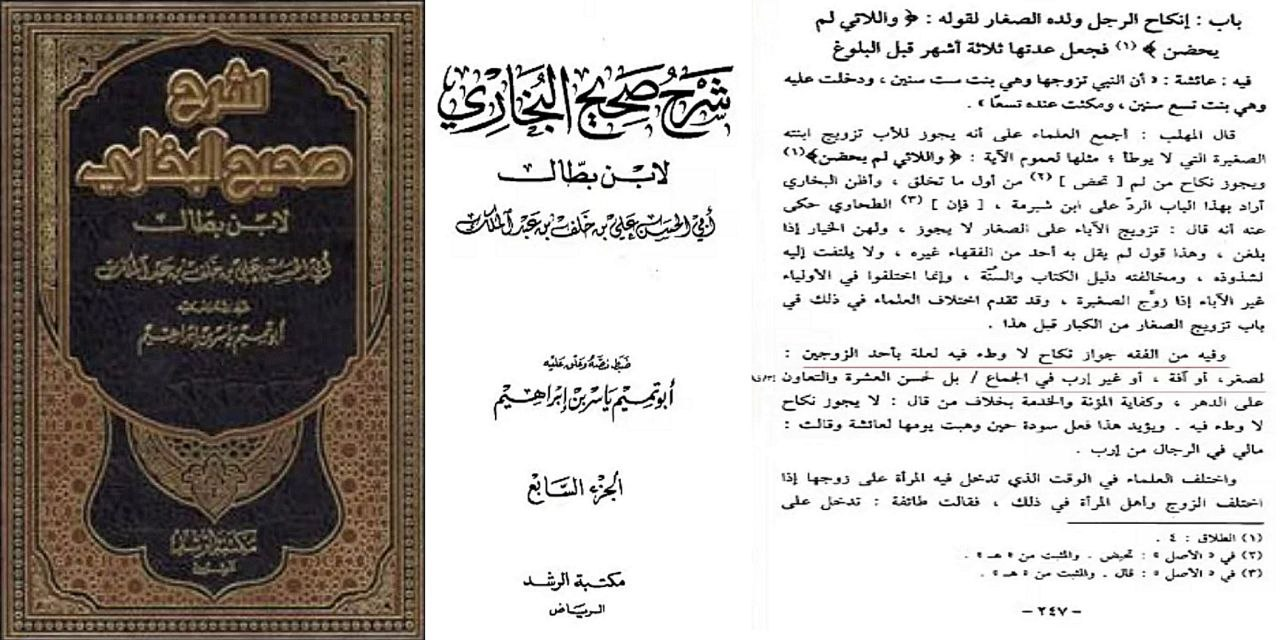 شرح
صحيح البخاري
لابن بطال
أبي الحسن علي بن خلف بن عبد الملك
أبو تميم ياسر بن إبراهيم
مكتبة الرشد
شَرْحُ صَحِيحِ البُخَارِيّ
لابن بطّال
أبي الحسن علي بن خلف بن عبد الملك
ضبط نصّه وعلق عليه
أبو تميم ياسر بن إبراهيم
الجزء السَّابع
مكتبة الرشد
الرياض
باب : إنكاح الرجل ولده الصغار لقوله : ﴿ واللائي لم
يحضن ﴾ (١) فجعل عدتها ثلاثة أشهر قبل البلوغ
فيه : عائشة : « أن النبي تزوجها وهي بنت ست سنين ، ودخلت عليه
وهي بنت تسع سنين ، ومكثت عنده تسعًا » .
قال المهلب : أجمع العلماء على أنه يجوز للأب تزويج ابنته
الصغيرة التي لا يوطأ مثلها لعموم الآية : ﴿ واللائي لم يحضن﴾(١)
ويجوز نكاح من لم [ تحض ] (٢) من أول ما تخلق ، وأظن البخاري
أراد بهذا الباب الردّ على ابن شبرمة ، [ فإن ] (٣) الطحاوي حكى
عنه أنه قال : تزويج الآباء على الصغار لا يجوز ، ولهن الخيار إذا
بلغن ، وهذا قول لم يقل به أحد من الفقهاء غيره ، ولا يلتفت إليه
لشذوذه ، ومخالفته دليل الكتاب والسنّة ، وإنما اختلفوا في الأولياء
غير الآباء إذا زوَّج الصغيرة ، وقد تقدم اختلاف العلماء في ذلك في
باب تزويج الصغار من الكبار قبل هذا .
وفيه من الفقه جواز نكاح لا وطء فيه لعلة بأحد الزوجين :
لصغر، أو آفة ، أو غير إرب في الجماع / بل لحسن العشرة والتعاون
على الدهر ، وكفاية المؤنة والخدمة بخلاف من قال : لا يجوز نكاح
لا وطء فيه . ويؤيد هذا فعل سودة حين وهبت يومها لعائشة وقالت :
مالي في الرجال من إرب .
واختلف العلماء في الوقت الذي تدخل فيه المرأة على زوجها إذا
اختلف الزوج وأهل المرأة في ذلك ، فقالت طائفة : تدخل على
(١) الطلاق : ٤ .
(٢) في « الأصل » : تحيض . والمثبت من « هـ » .
(٣) في « الأصل » : قال . والمثبت من « هـ » .
- ٢٤٧ -